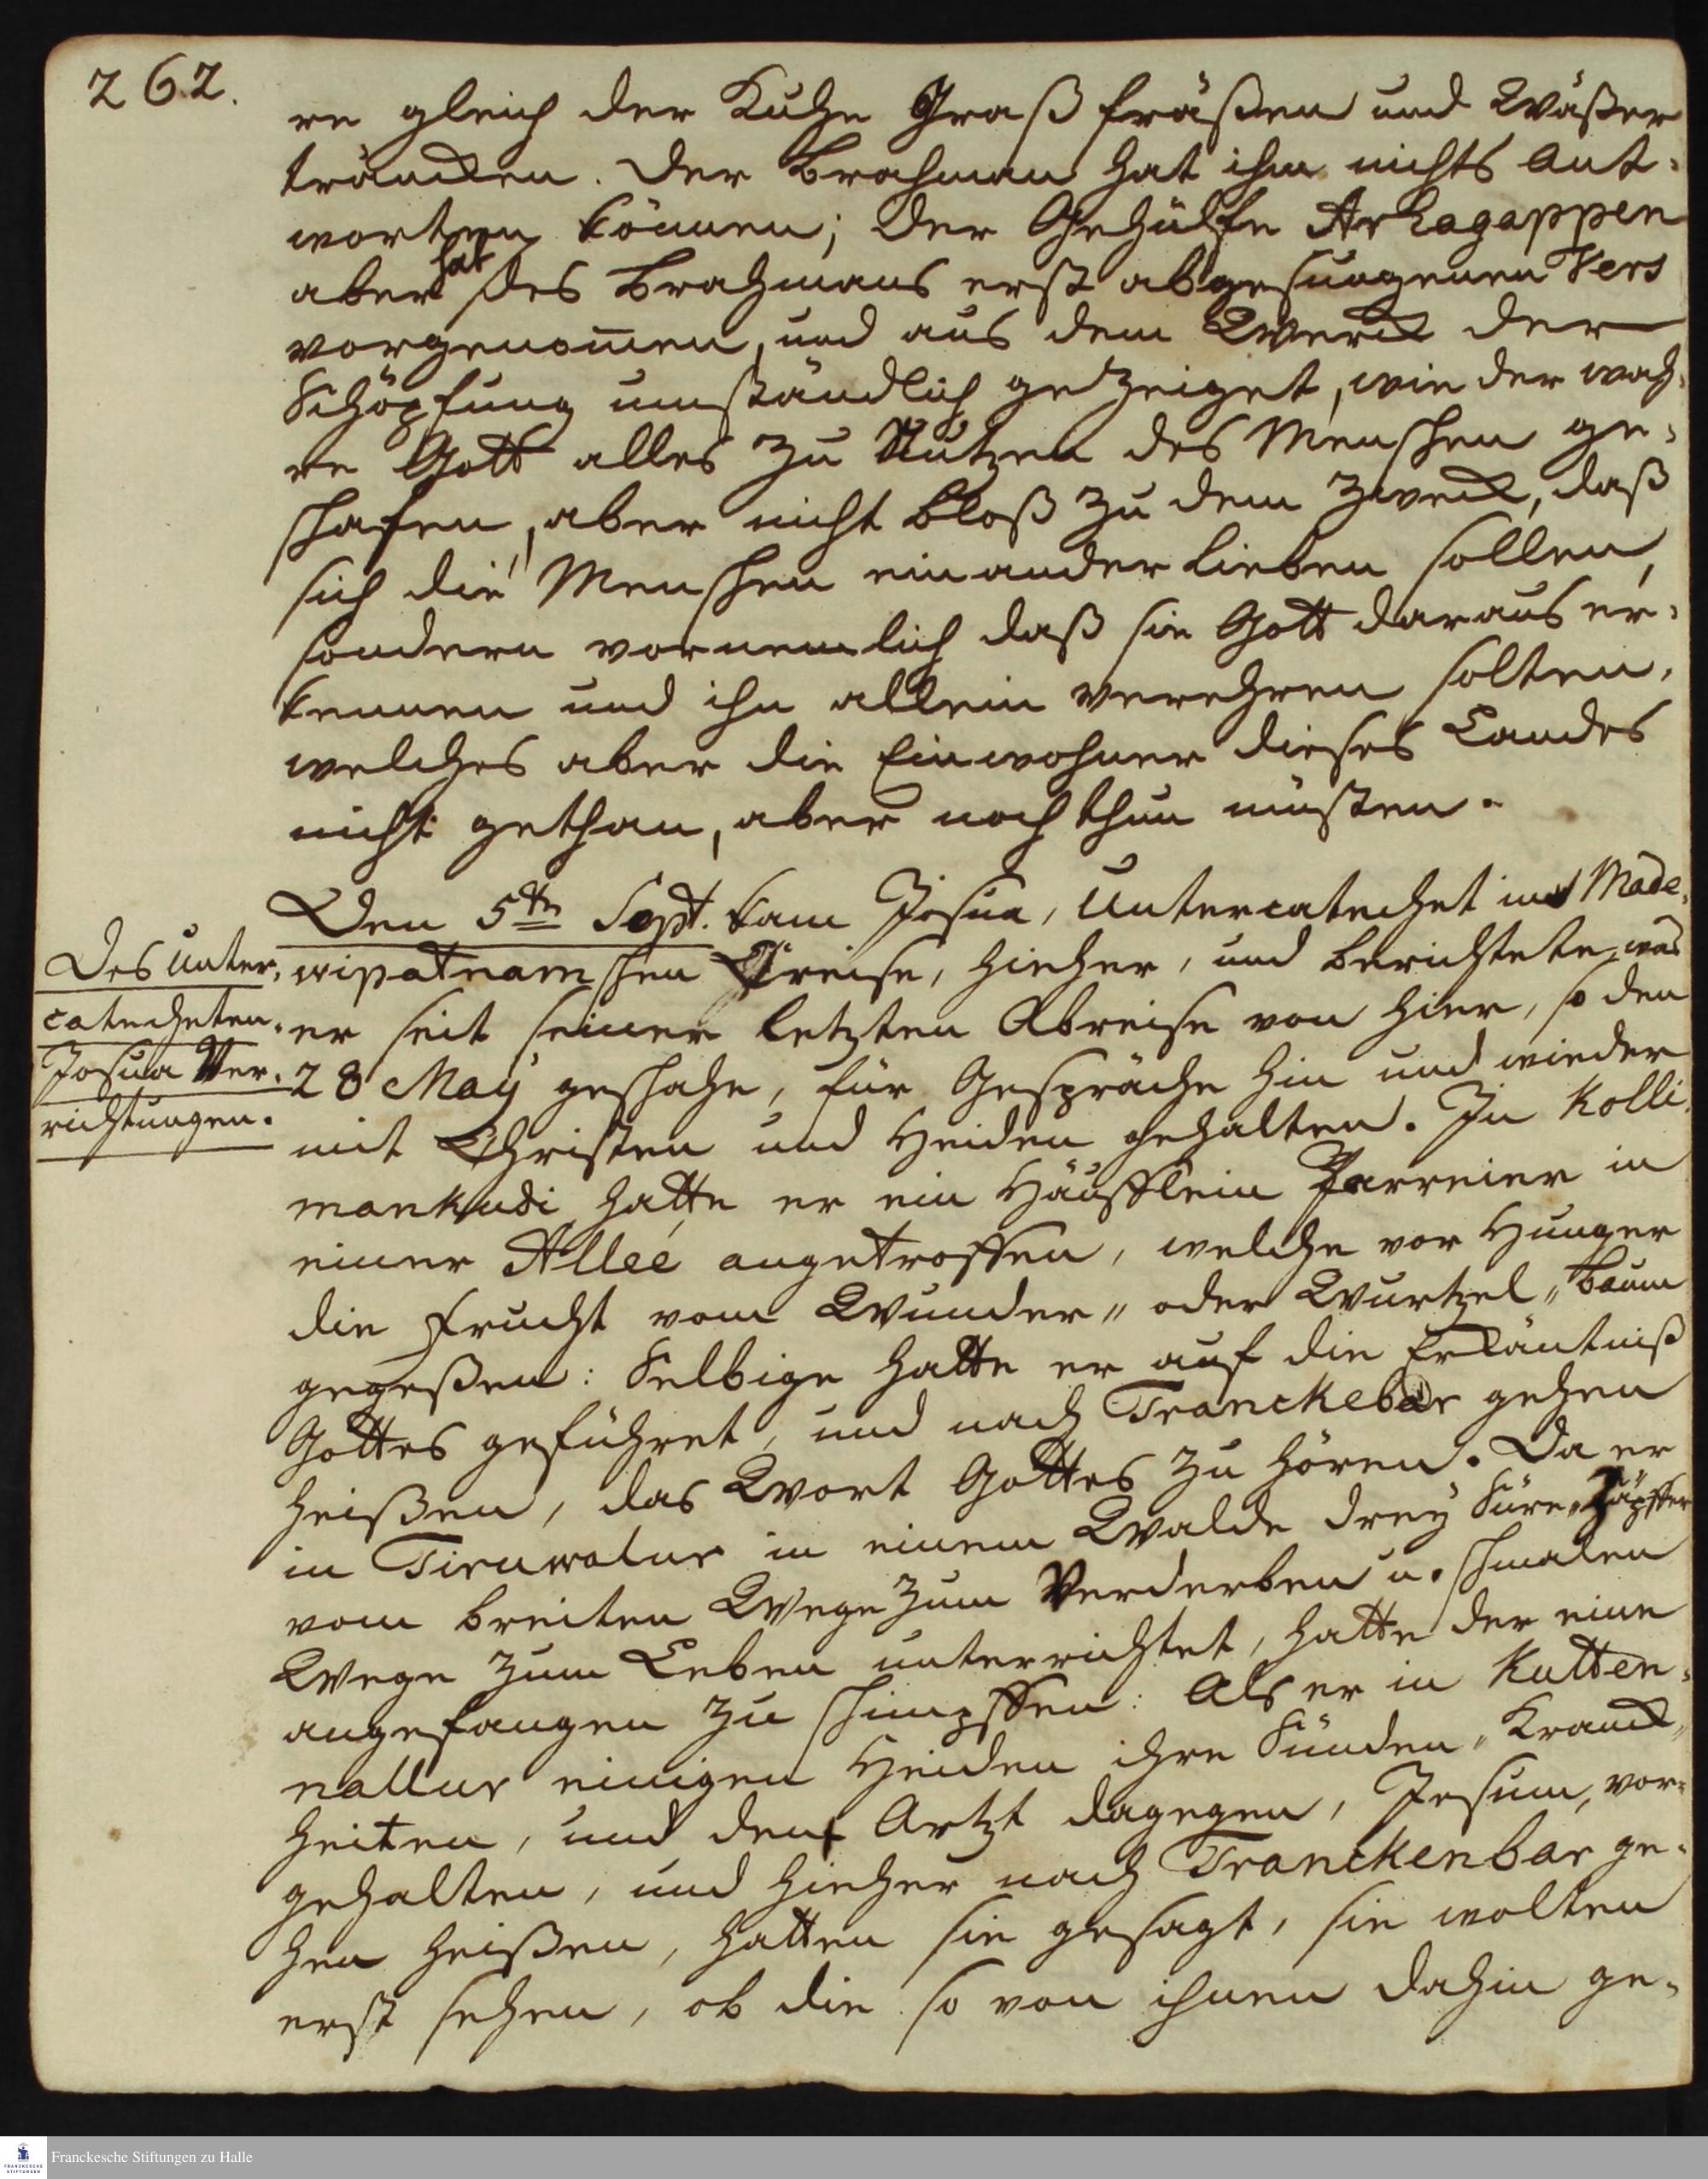 262.
re gleich der Kuhe Graß fräßen und Waßer
träncken. Der Brahman hat ihm nichts ant-
worten können; der Gehülfe Arhagappen
aber hat des Brahmans erst abgesungenen Vers
vorgenom̄en, und aus dem Werck der
Schöpfung umständlich gezeiget, wie der wah-
re Gott alles zu Nutzen des Menschen ge-
schafen, aber nicht bloß zu dem Zweck, daß
sich die Menschen einander lieben sollen,
sondern vornemlich daß sie Gott daraus er-
kennen und ihn allein verehren solten,
welches aber die Einwohner dieses Landes
nicht gethan, aber noch thun müsten.
Den 5ten Sept. kam Josua, Untercatechet im Made-
wipatnamschen Kreise, hieher, und berichtete, was
er seit seiner letzten Abreise von hier, so den
28 May geschahe, für Gespräche hin und wieder
mit Christen und Heiden gehalten. In Kolli-
mankudi hatte er ein Häufflein Parreier in
einer Allee angetroffen, welche vor Hunger
die Frucht vom Wunder- oder Wurtzel-Baum
gegeßen: Selbige hatte er auf die Erkäntniß
Gottes geführet, und nach Tranckebar gehen
heißen, das Wort Gottes zu hören. Da er
in Tiruwalur in einem Walde drey Süre-Zäpffer
vom breiten Wege zum Verderben u. schmalen
Wege zum Leben unterrichtet, hatte der eine
angefangen zu schimpffen: Als er in Kutten-
nallur einigen Heiden ihre Sünden-Kranck-
heiten, und den Artzt dagegen, Jesum, vor-
gehalten, und hieher nach Tranckenbar ge-
hen heißen, hatten sie gesagt, sie wolten
erst sehen, ob die so von ihnen dahin ge-
Des Unter-
catecheten
Josua Ver-
richtungen.
Franckesche Stiftungen zu Halle